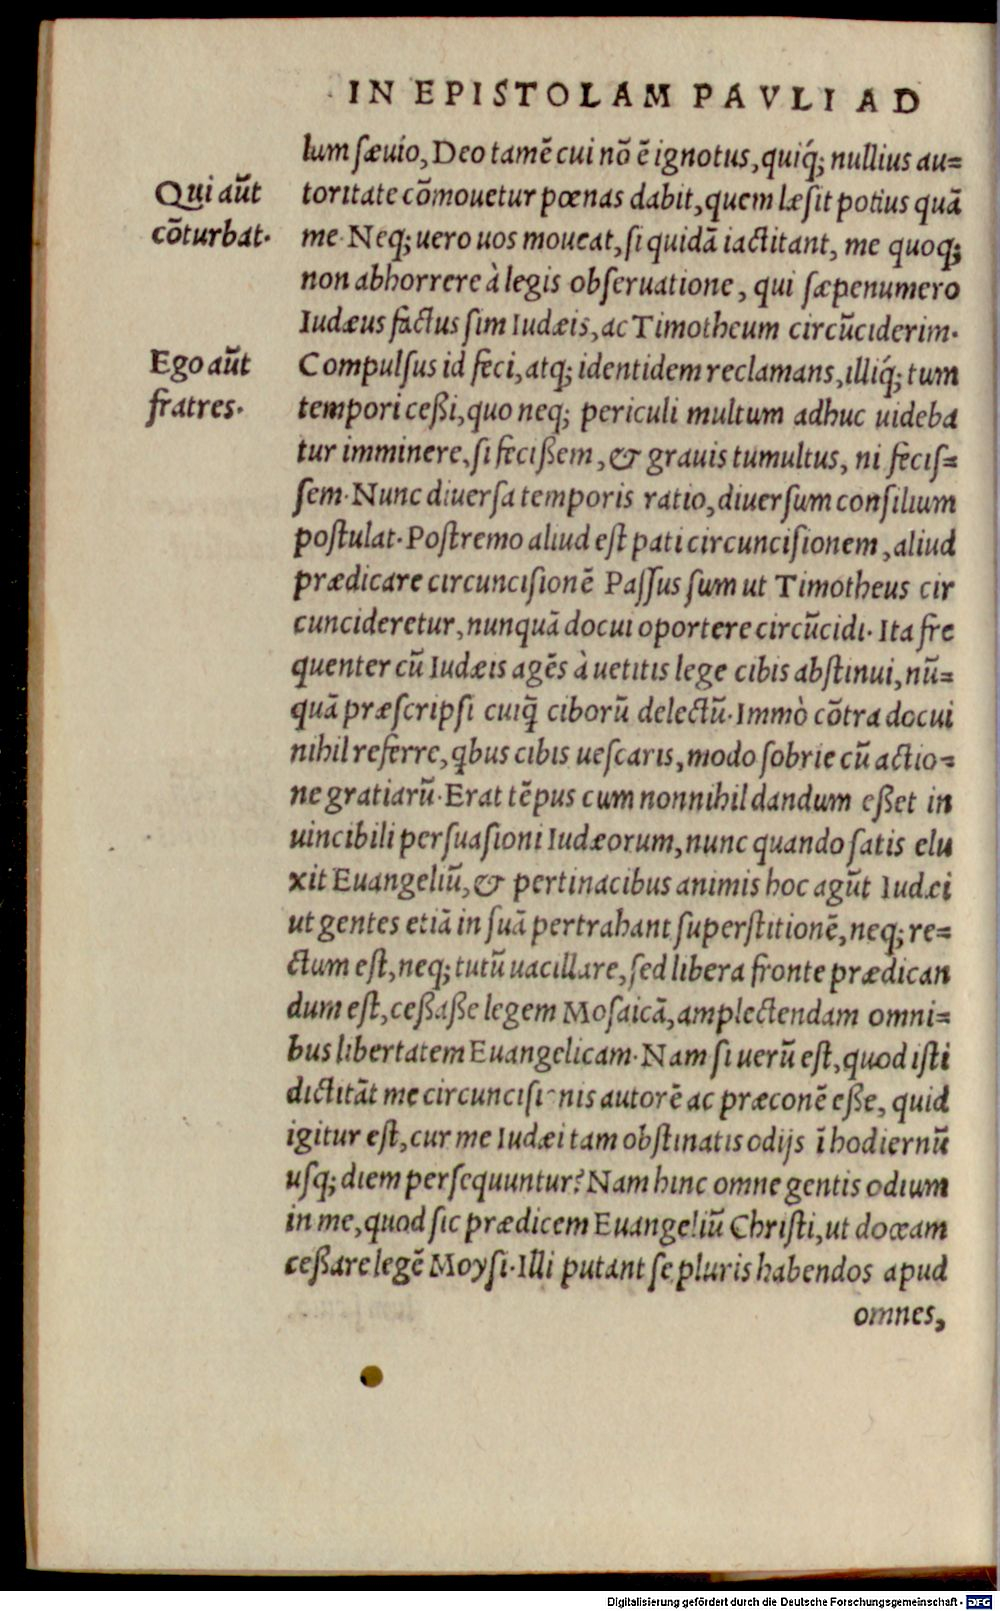 IN EPISTOLAM PAVLI AD
lum sæuio, Deo tamē cui nō ē ignotus, quiq́; nullius au=
Qui aūt
toritate cōmouetur pœnas dabit, quem læsit potius quā
cōturbat.
me. Neq; uero uos moueat, si quidā iactitant, me quoq;
non abhorrere à legis obseruatione, qui sæpenumero
Iudæus factus sim Iudæis, ac Timotheum circūciderim.
Ego aūt
Compulsus id feci, atq; identidem reclamans, illiq́; tum
fratres.
tempori ceßi, quo neq; periculi multum adhuc uideba
tur imminere, si fecißem, & grauis tumultus, ni fecis=
sem. Nunc diuersa temporis ratio, diuersum consilium
postulat. Postremo aliud est pati circuncisionem, aliud
prædicare circuncisionē Passus sum ut Timotheus cir
cuncideretur, nunquā docui oportere circūcidi. Ita fre
quenter cū Iudæis agēs à uetitis lege cibis abstinui, nū=
quā præscripsi cuiq̃ ciborū delectū. Immò cōtra docui
nihil referre, qbus cibis uescaris, modo sobrie cū actio=
ne gratiarū. Erat tēpus cum nonnihil dandum eßet in
uincibili persuasioni Iudæorum, nunc quando satis elu
xit Euangeliū, & pertinacibus animis hoc agūt Iudæi
ut gentes etiā in suā pertrahant superstitionē, neq; re=
ctum est, neq; tutū uacillare, sed libera fronte prædican
dum est, ceßaße legem Mosaicā, amplectendam omni=
bus libertatem Euangelicam. Nam si uerū est, quod isti
dictitāt me circuncisi nis autorē ac præconē eße, quid
igitur est, cur me Iudæi tam obstinatis odijs ī hodiernū
usq; diem persequuntur? Nam hinc omne gentis odium
in me, quod sic prædicem Euangeliū Christi, ut doceam
ceßare legē Moysi. Illi putant se pluris habendos apud
omnes,
Digitalisierung gefördert durch die Deutsche Forschungsgemeinschaft - DFG